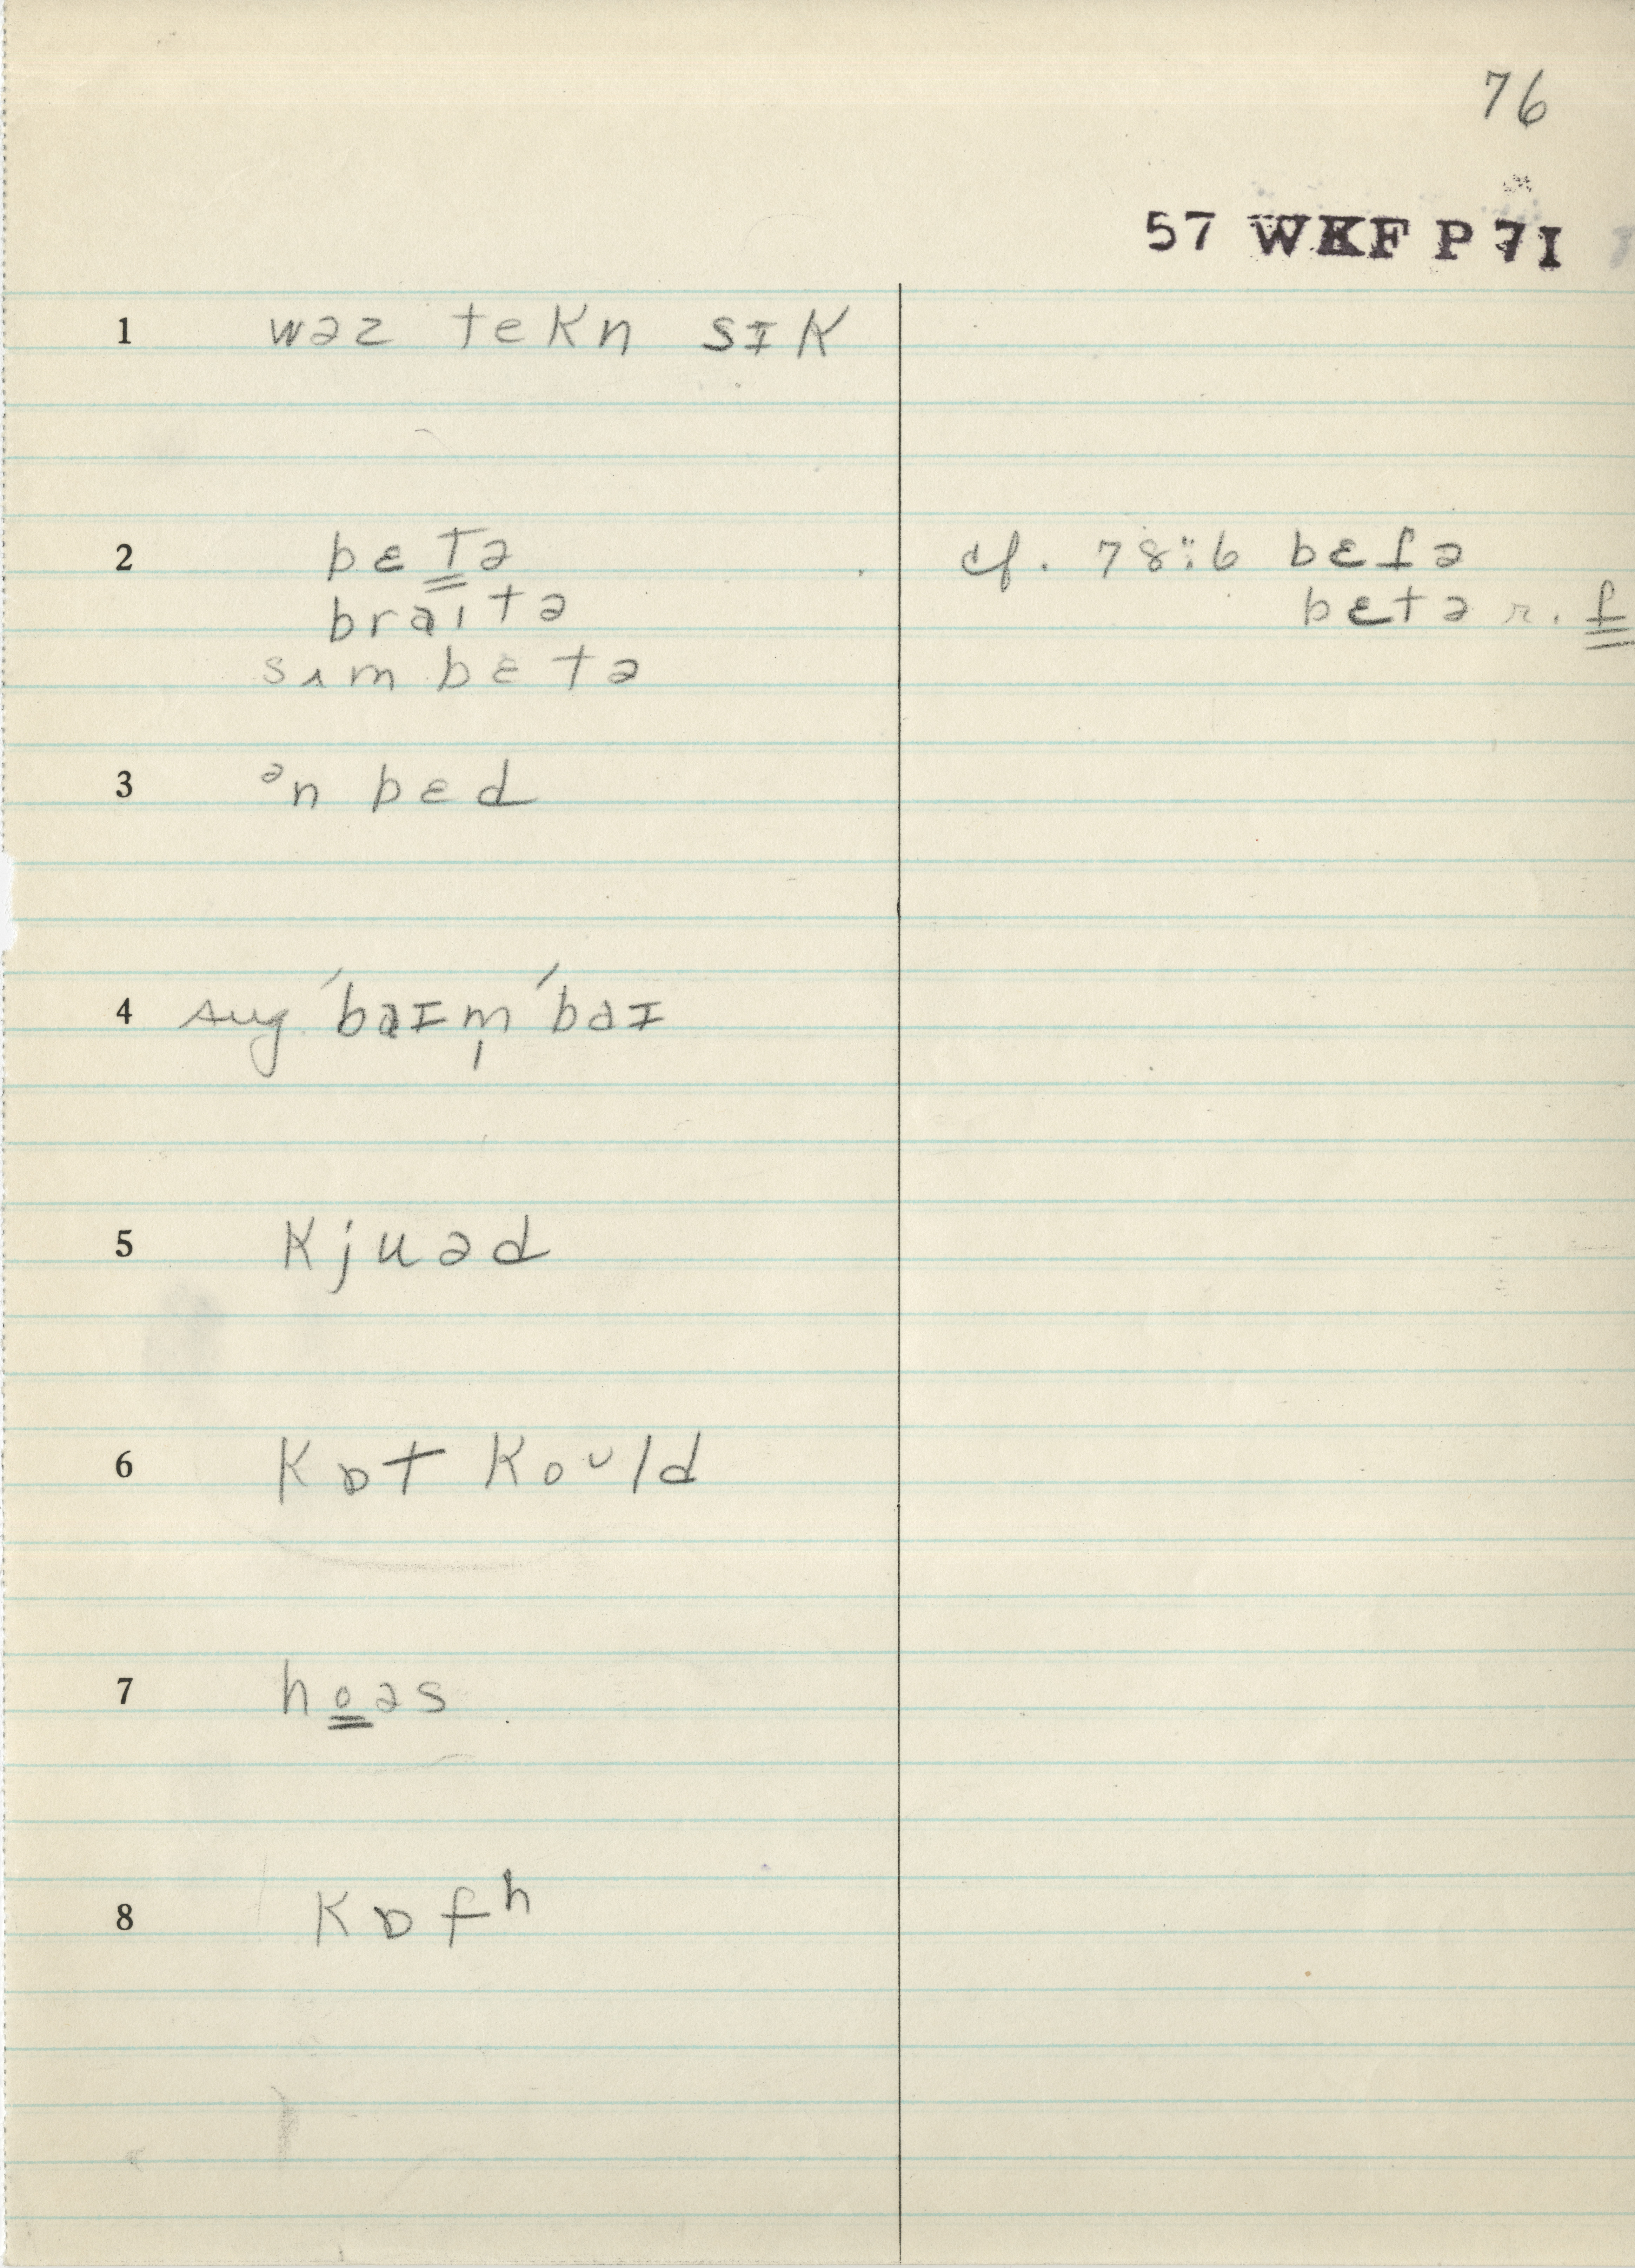 76
57 WKF P 7I
1 wəz tekn sɪk
2 bɛtə cf. 78:6 bɛʃə
braitə bɛtə r. ʃ
sʌm bɛtə
3 ən bɛd
4 sug. ˈbaɪm̩ˈbaɪ
5 kjuəd
6 kɒt kould
7 hoəs
8 kɒfʰ